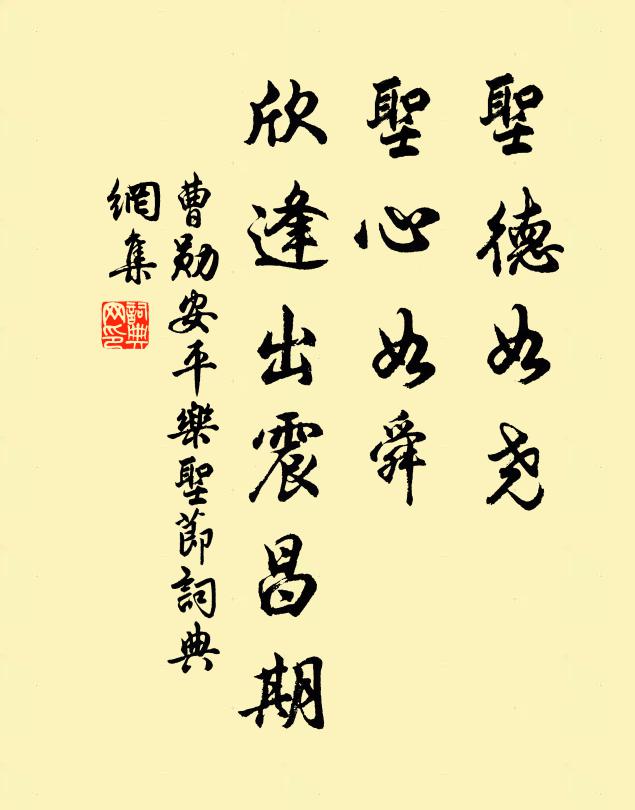 聖德如尧
聖心如舜
欣逢出震昌期
曹勛安平樂聖節詞典
網集
詞典
网印